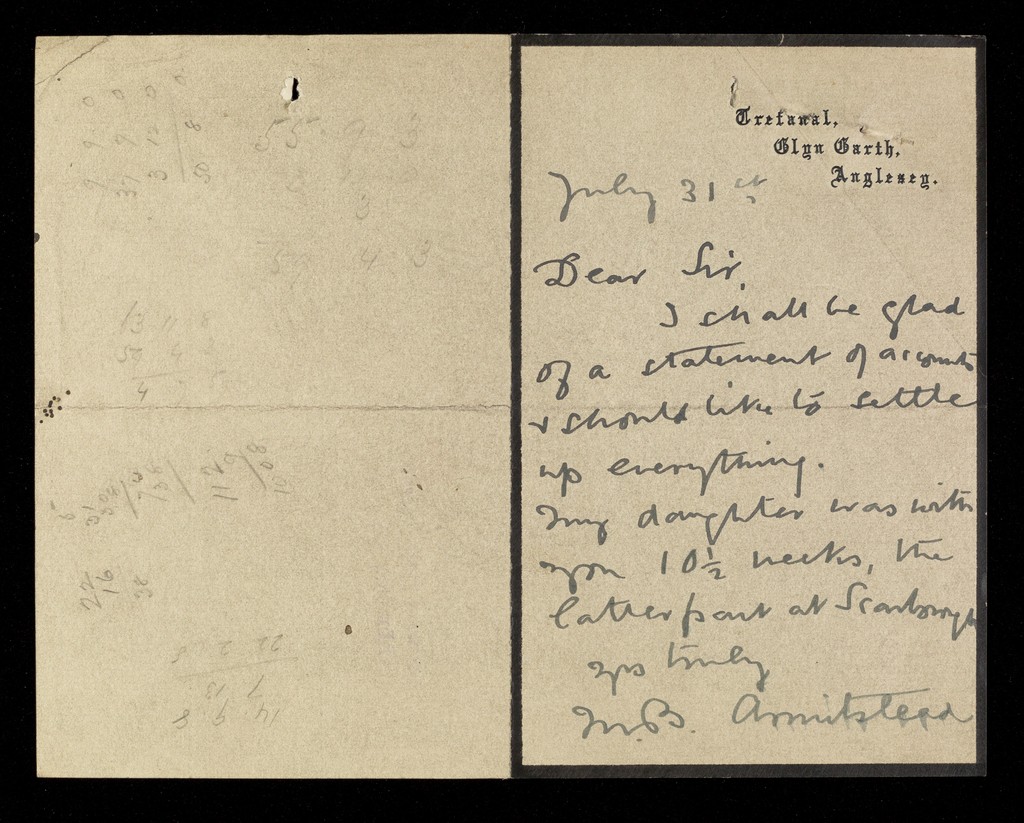 55 9 3
3
59 4 3
13 11
50 4
4
22
16
38
22 2 8
7 13
14 9 8
Trefanal,
Glyn Garth,
Anglesey.
July 31st
Dear Sir,
I shall be glad
of a statement of accounts
& should like to settle
up everything.
My daughter was with
you 10½ weeks, the
latter part at Scarborough
yrs truly
M.B. Armitstead